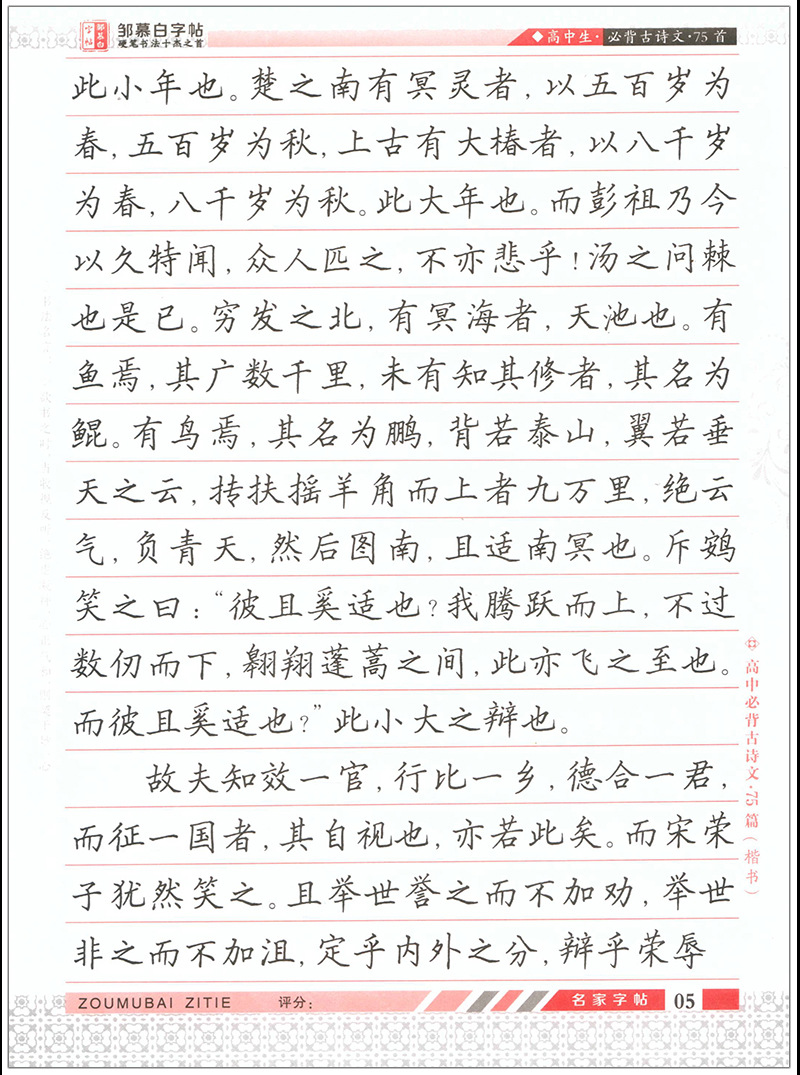 邹慕白
字帖
邹慕白字帖
硬笔书法十杰之首
高中生·必背古诗文·75首
此小年也。楚之南有冥灵者,以五百岁为
春,五百岁为秋,上古有大椿者,以八千岁
为春,八千岁为秋。此大年也。而彭祖乃今
以久特闻,众人匹之,不亦悲乎!汤之问棘
也是已。穷发之北,有冥海者,天池也。有
鱼焉,其广数千里,未有知其修者,其名为
鲲。有鸟焉,其名为鹏,背若泰山,翼若垂
天之云,抟扶摇羊角而上者九万里,绝云
气,负青天,然后图南,且适南冥也。斥鴳
笑之曰:“彼且奚适也?我腾跃而上,不过
数仞而下,翱翔蓬蒿之间,此亦飞之至也。
而彼且奚适也?”此小大之辩也。
故夫知效一官,行比一乡,德合一君,
而征一国者,其自视也,亦若此矣。而宋荣
子犹然笑之。且举世誉之而不加劝,举世
非之而不加沮,定乎内外之分,辩乎荣辱
高中必背古诗文·75篇(楷书)
ZOUMUBAI ZITIE 评分:
名家字帖 05